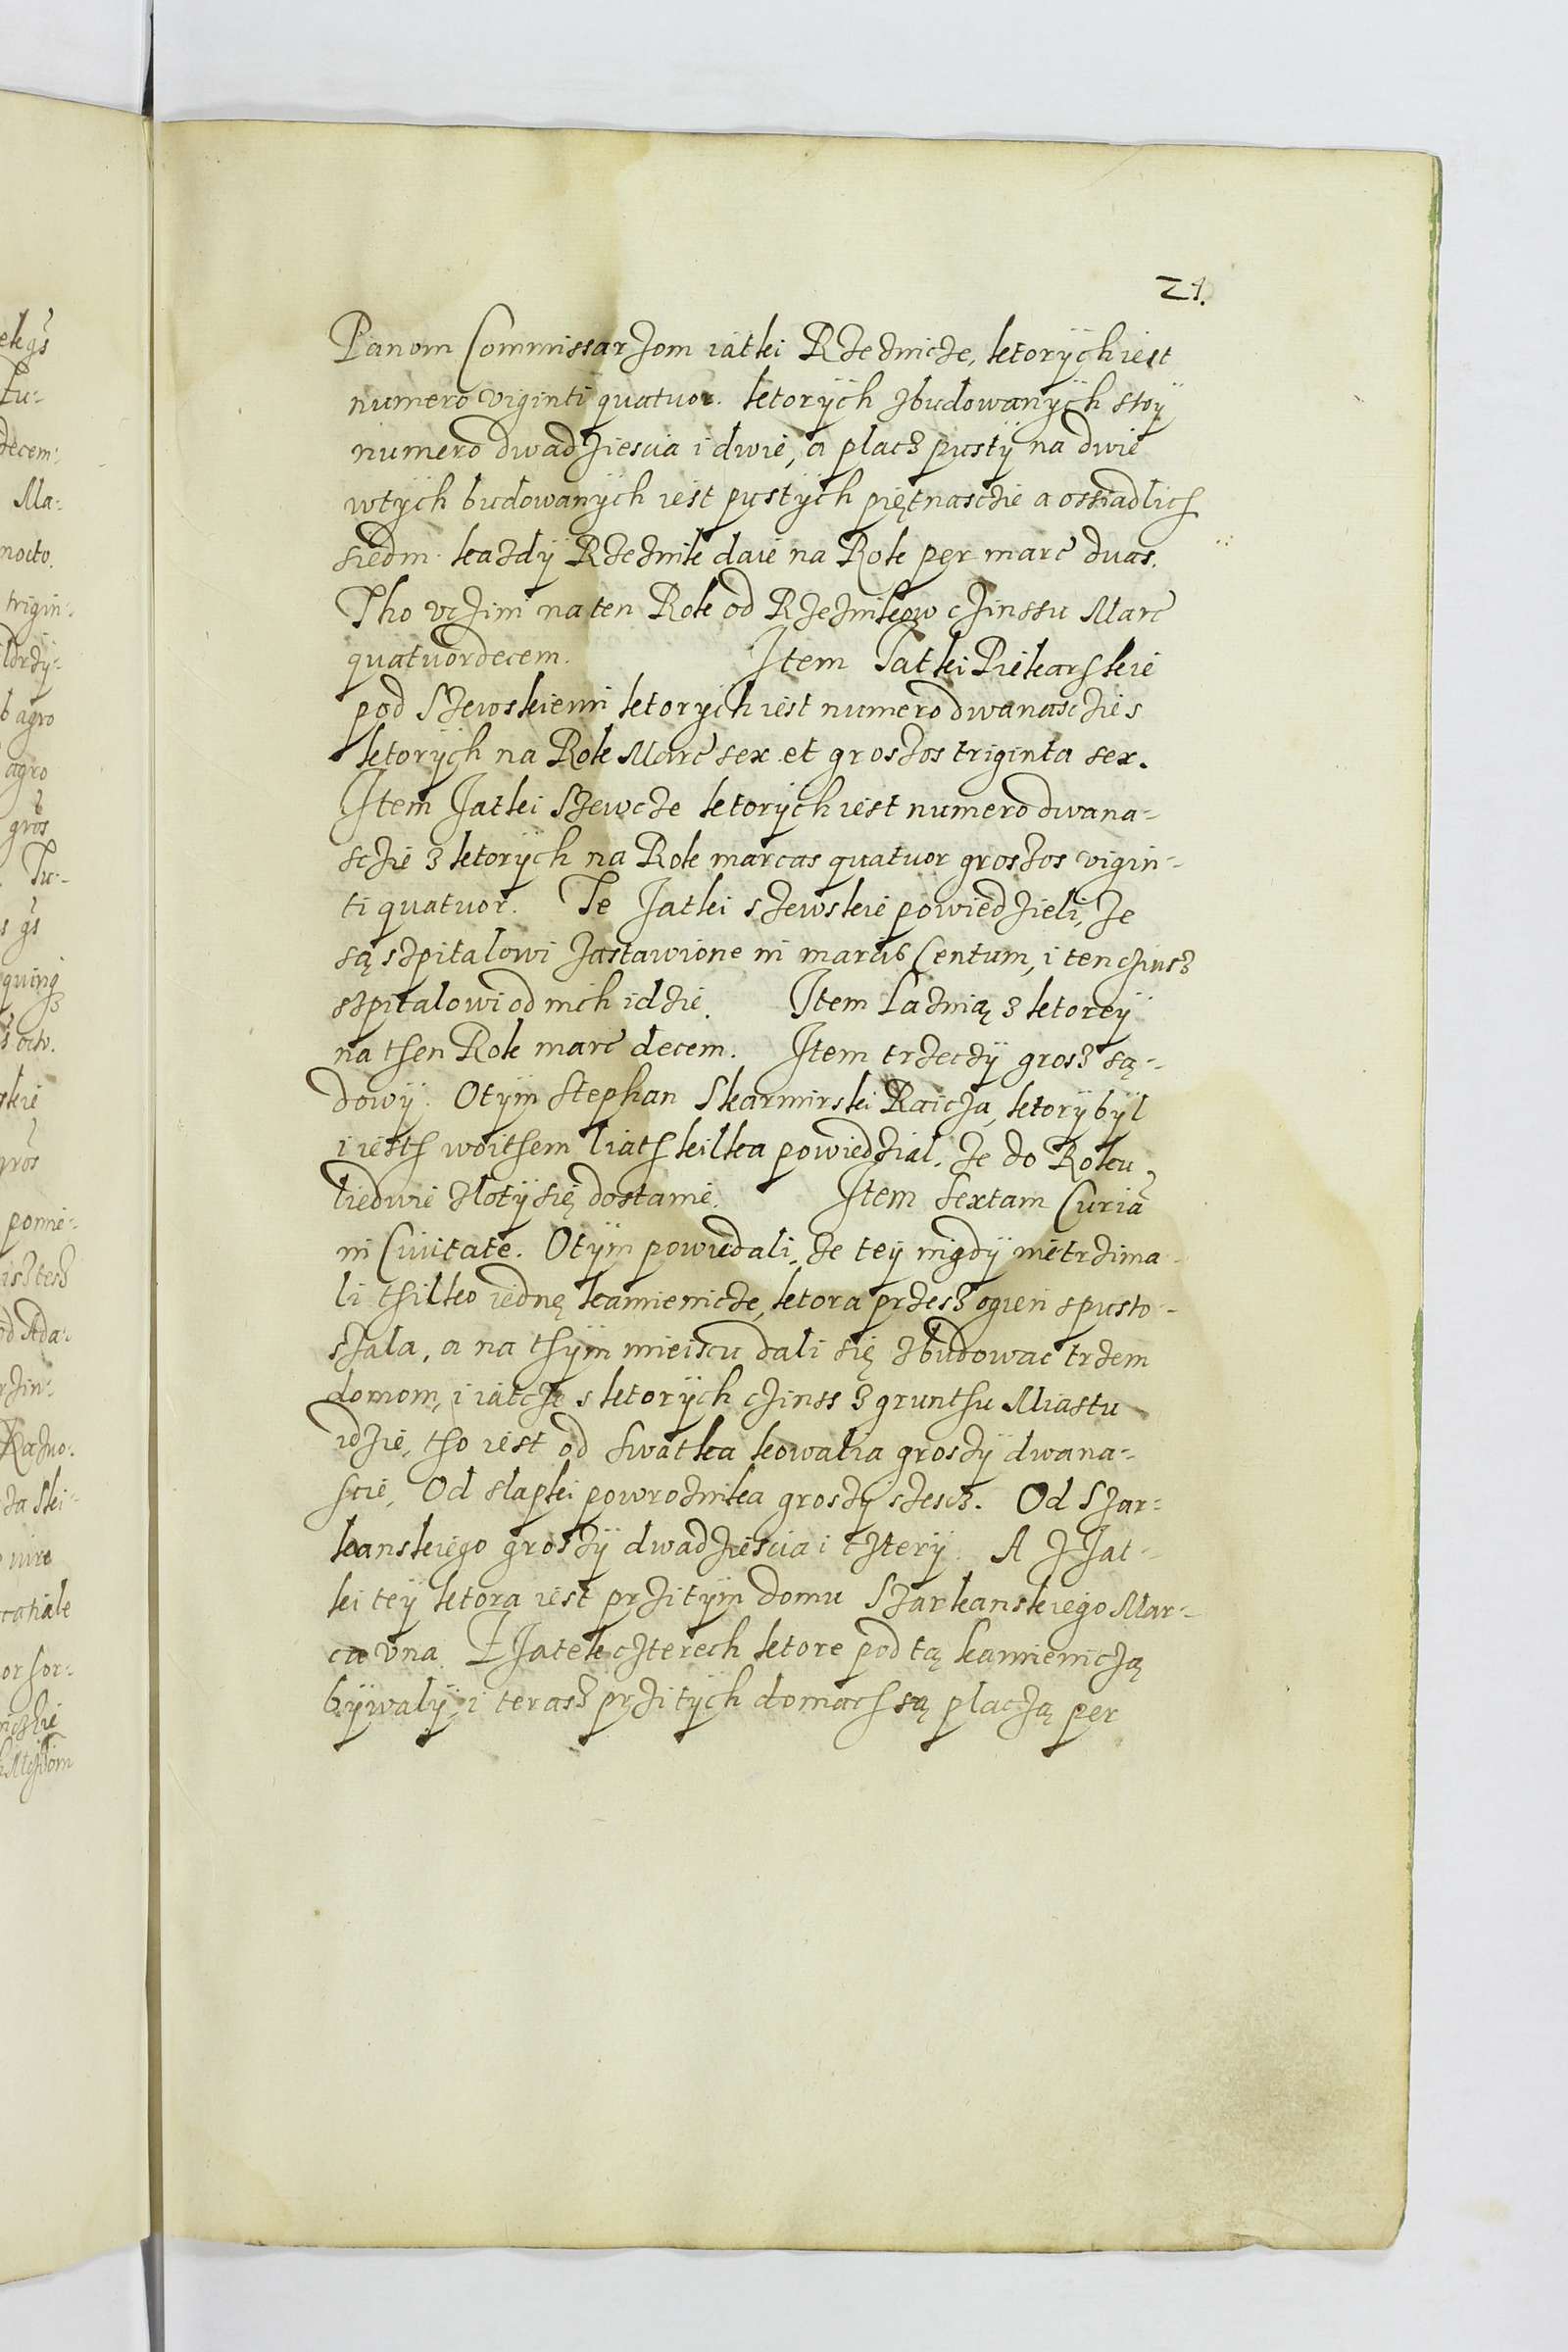 21.
Panom Commissarzom iatki Rzeznicze, ktorych iest
numero viginti quatuor. ktorych zbudowanych stoy
numero dwadziescia i dwie, a placz pusty na dwie
wtych budowanych iest pustych piętnasczie a ossiadlich
siedm. kazdy Rzeznik daie na Rok per marc duas.
Tho vczini na ten Rok od Rzeznikow czinssu Marc
quatuordecem. Item Iatki Piekarskie
pod Szewskiemi ktorych iest numero dwanasczie s
ktorych na Rok Marc sex et groszos triginta sex.
Item Jatki Szewcze ktorych iest numero dwana-
sczie z ktorych na Rok marcas quatuor groszos vigin-
ti quatuor. Te Jatki szewskie powiedzieli, ze
są szpitalowi zastawione in marcis Centum, i ten czinsz
szpitalowi od nich idzie. Item Laznią z ktorey
na then Rok marc decem. Item trzeczy grosz są-
dowy. Otym Stephan Skarmirski Raicza, ktory byl
i iesth woithem liath kilka powiedzial, ze do Roku
liedwie zloty się dostanie. Item Sextam Curia
in Civitate. Otym powiedali, ze tey nigdy nietrzima
li thilko iednę kamienicze, ktora przesz ogien spusto-
szala, a na thym mieiscu dali się zbudowac trzem
domom, i iatcze s ktorych czinss z grunthu Miastu
idzie, tho iest od Swatka kowalia groszy dwana-
scie, Od slapki powroznika groszy szescz. Od Szar-
kanskiego groszy dwadziescia i cztery. A z Jat-
ki tey ktora iest przi tym domu Szarkanskiego Mar-
ca vna. Z Jatek czterech ktore pod tą kamieniczą
bywaly, i terasz przi tych domach są placzą per